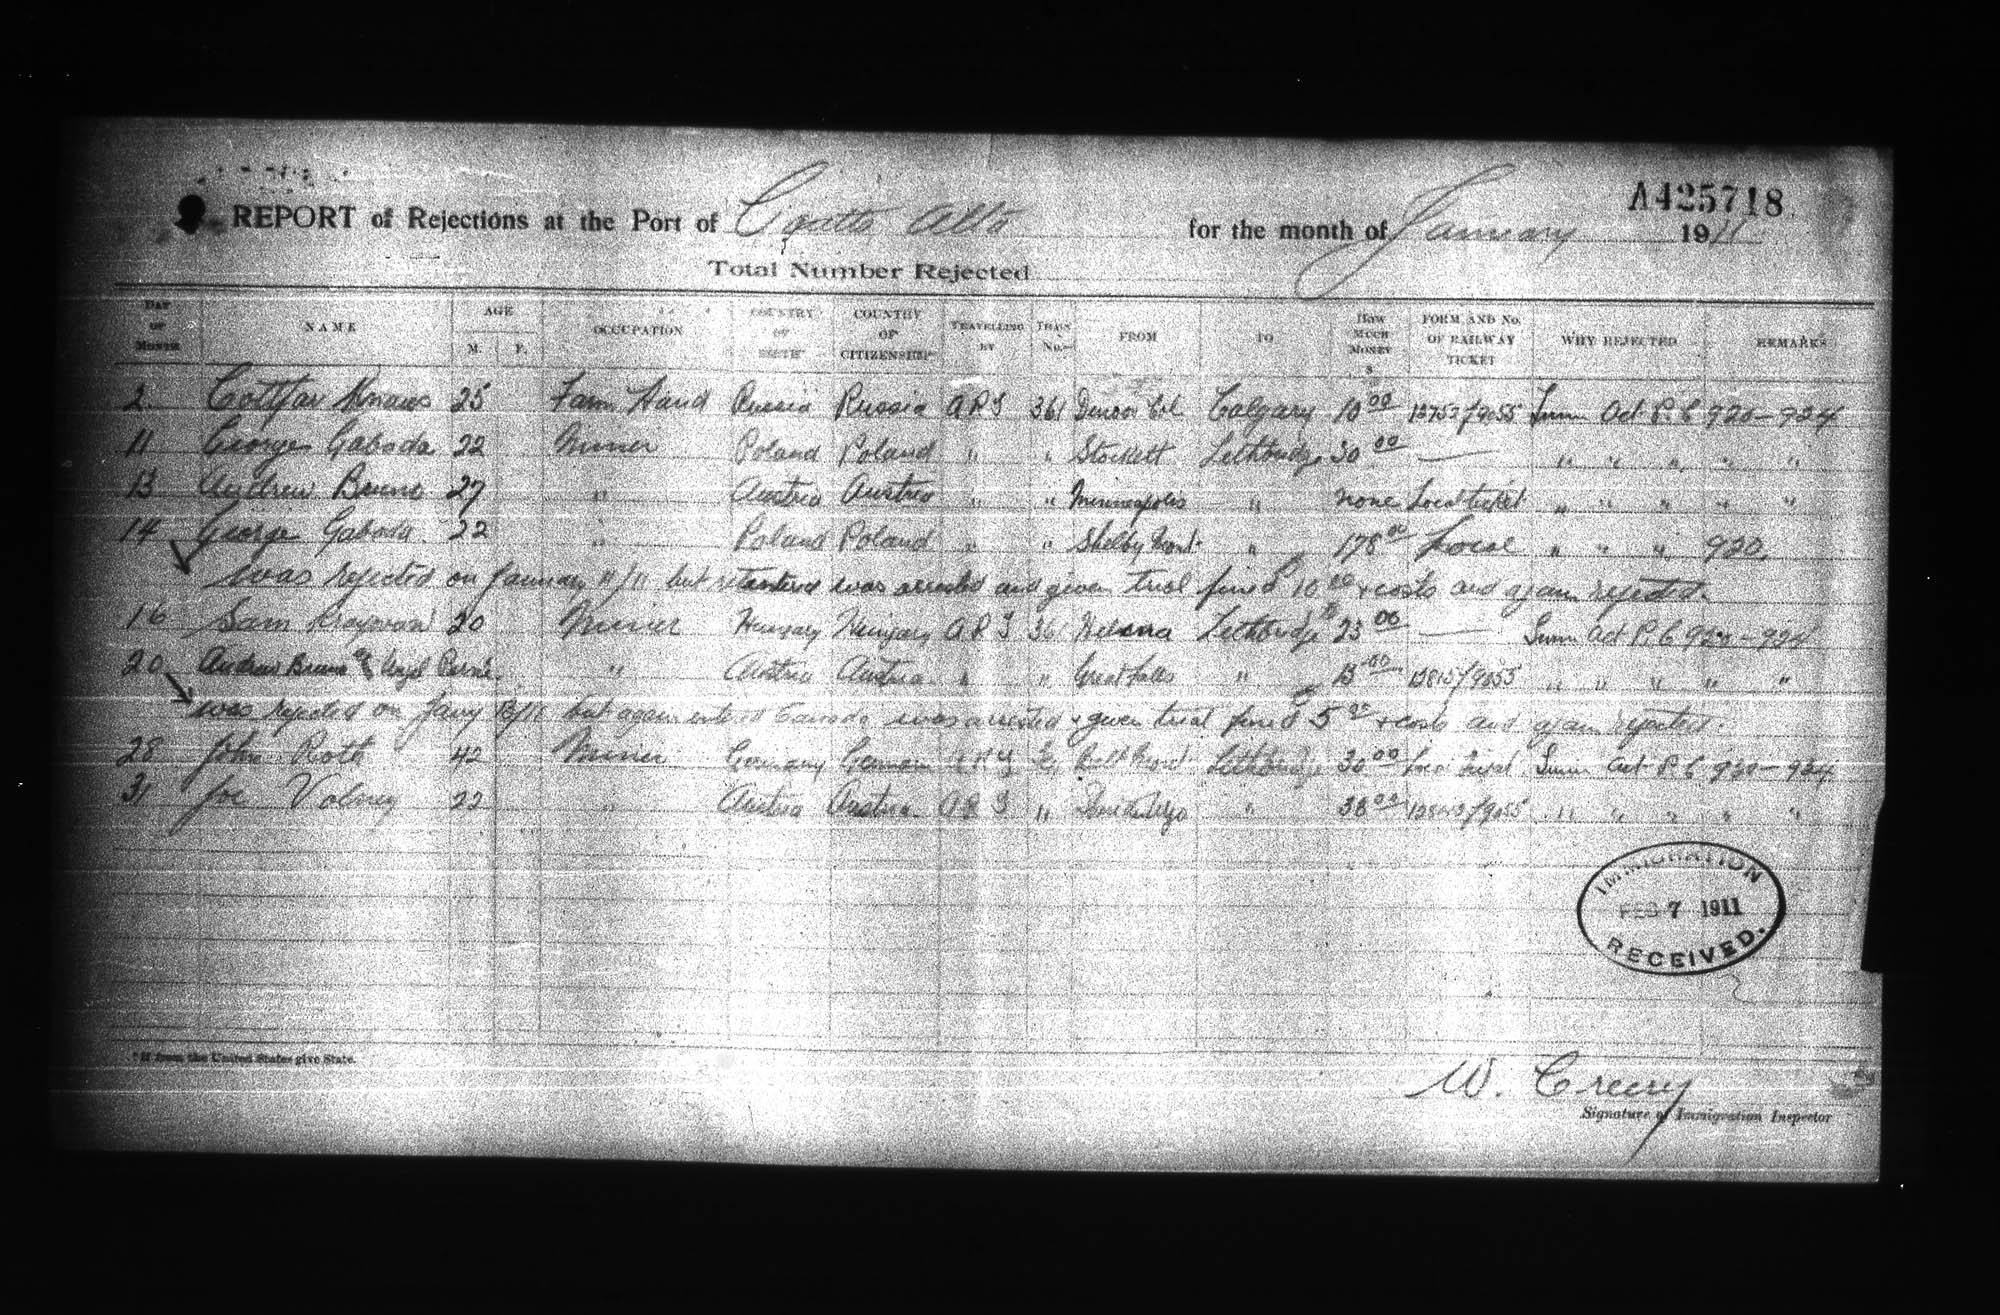 A425718
REPORT of Rejections at the Port of Coutts Alta for the month of January 1911
Total Number Rejected
DAY OF MONTH NAME AGE M. F. OCCUPATION COUNTRY OF BIRTH COUNTRY OF CITIZENSHIP TRAVELLING BY TRAIN No. FROM TO How MUCH MONEY $ FORM AND No. OF RAILWAY TICKET WHY REJECTED REMARKS
2 25 Farm Hand Russia Russia 361 Calgary 10 00 Act P.C 920-924
11 George Gaboda 22 Miner Poland Poland " " Stockett Lethbridge 30 00 — " " " " "
13 Andrew Bruno 27 " Austria Austria " " Minneapolis " none Local ticket " " " " "
14 George Gaboda 22 " Poland Poland " " Shelby Mont " 178 00 Local " " " 920
was rejected on January 11/11 but was arrested and given trial fined 10 00 + costs and again rejected
16 Sam 20 Miner Hungary Hungary 361 Helena Lethbridge 23 00 — Act P.C 920-924
20 Andrew Bruno or " Austria Austria " " Great Falls " 13 00 " " " " "
was rejected on Jany 13/11 but again entered Canada was arrested + given trial fined 5 00 + costs and again rejected.
28 John Roth 42 Miner Germany German Lethbridge 30 00 Act P.C 920-924
31 Joe Volney 22 " Austria Austria " " 38 00 " " " " "
IMMIGRATION
FEB 7 1911
RECEIVED.
* If from the United States give State.
W. Creery
Signature of Immigration Inspector